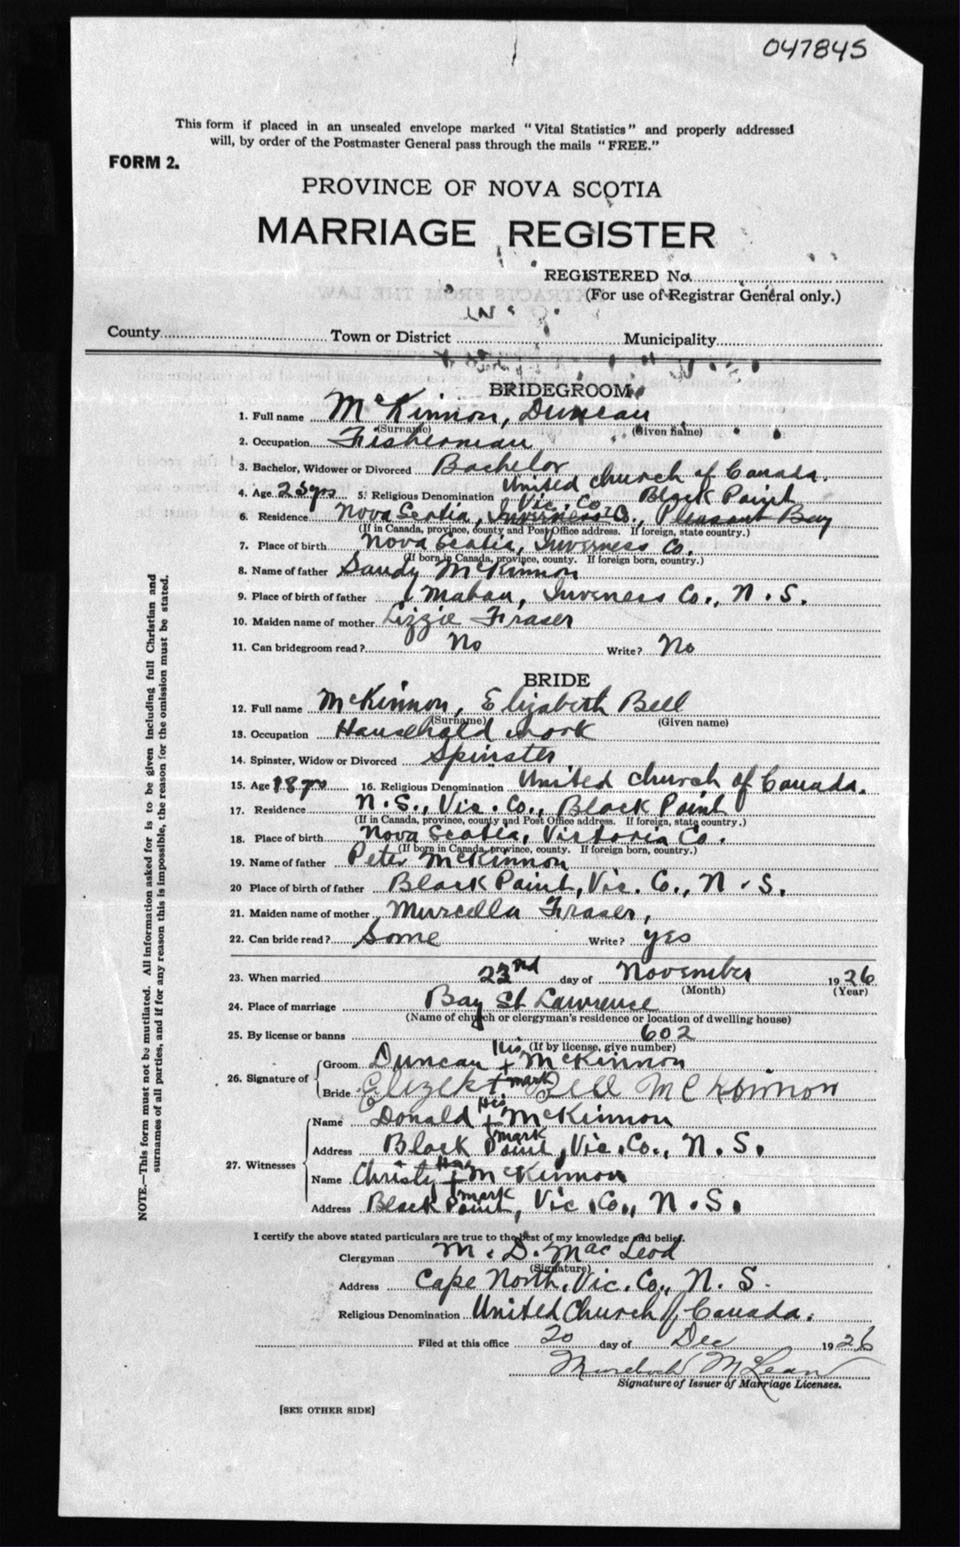 047845
This form if placed in an unsealed envelope marked "Vital Statistics" and properly addressed
will, by order of the Postmaster General pass through the mails "FREE."
FORM 2.
PROVINCE OF NOVA SCOTIA
MARRIAGE REGISTER
REGISTERED No.
(For use of Registrar General only.)
County Town or District Municipality
BRIDEGROOM
1. Full name McKinnon, Duncan
(Surname) (Given name)
2. Occupation Fisherman
3. Bachelor, Widower or Divorced Bachelor
4. Age 25 yrs 5. Religious Denomination United church of Canada.
Vic. Co. Black Point
6. Residence Nova Scotia, Inverness Co., Pleasant Bay
(If in Canada, province, county and Post Office address. If foreign, state country.)
7. Place of birth Nova Scotia, Inverness Co.
(If born in Canada, province, county. If foreign born, country.)
8. Name of father Sandy McKinnon
9. Place of birth of father Mabou, Inverness Co., N.S.
10. Maiden name of mother Lizzie Fraser
11. Can bridegroom read? No Write? No
BRIDE
12. Full name McKinnon, Elizabeth Bell
(Surname) (Given name)
13. Occupation Household work
14. Spinster, Widow or Divorced Spinster
15. Age 18 yrs 16. Religious Denomination United church of Canada.
17. Residence N.S., Vic. Co., Black Point
(If in Canada, province, county and Post Office address. If foreign, state country.)
18. Place of birth Nova Scotia, Victoria Co.
(If born in Canada, province, county. If foreign born, country.)
19. Name of father Peter McKinnon
20 Place of birth of father Black Point, Vic. Co., N.S.
21. Maiden name of mother Murcella Fraser,
22. Can bride read? Some Write? yes
23. When married 23nd day of November 1926
(Month) (Year)
24. Place of marriage Bay St Lawrence
(Name of church or clergyman's residence or location of dwelling house)
25. By license or banns 602
(If by license, give number)
26. Signature of Groom Duncan His + mark McKinnon
Bride Elizebt Bell McKinnon
27. Witnesses Name Donald His + mark McKinnon
Address Black Point, Vic. Co., N.S.
Name Christy + mark McKinnon
Address Black Point, Vic. Co., N.S.
I certify the above stated particulars are true to the best of my knowledge and belief.
Clergyman M. D. MacLeod
(Signature)
Address Cape North, Vic. Co., N.S.
Religious Denomination United Church of Canada.
Filed at this office 20 day of Dec 1926
Murdoch McLean
Signature of Issuer of Marriage Licenses.
[SEE OTHER SIDE]
NOTE.—This form must not be mutilated. All information asked for is to be given including full Christian and
surnames of all parties, and if for any reason this is impossible, the reason for the omission must be stated.